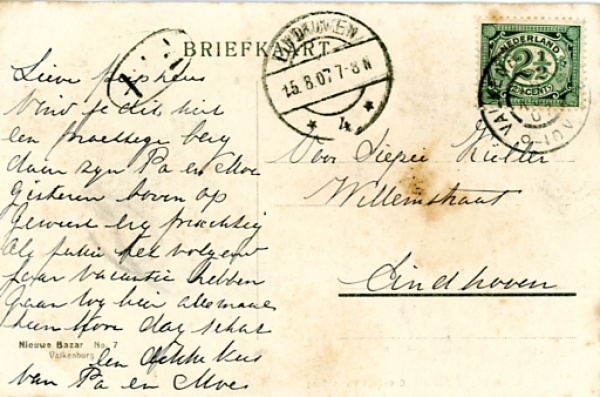 BRIEFKAART
EINDHOVEN
15.8.07 7-8 N
4
NEDERLAND
2½
2½ CENT
Lieve
Vind je dit niet
een prachtige berg
daar zijn Pa en Moe
gisteren boven op
geweest erg prachtig
Als jullie het volgend
jaar vacantie hebben
gaan wy hier allemaal
heen hoor dag schat
een dikke kus
van Pa en Moe
Voor
Willemstraat
Eindhoven
Nieuwe Bazar No. 7
Valkenburg